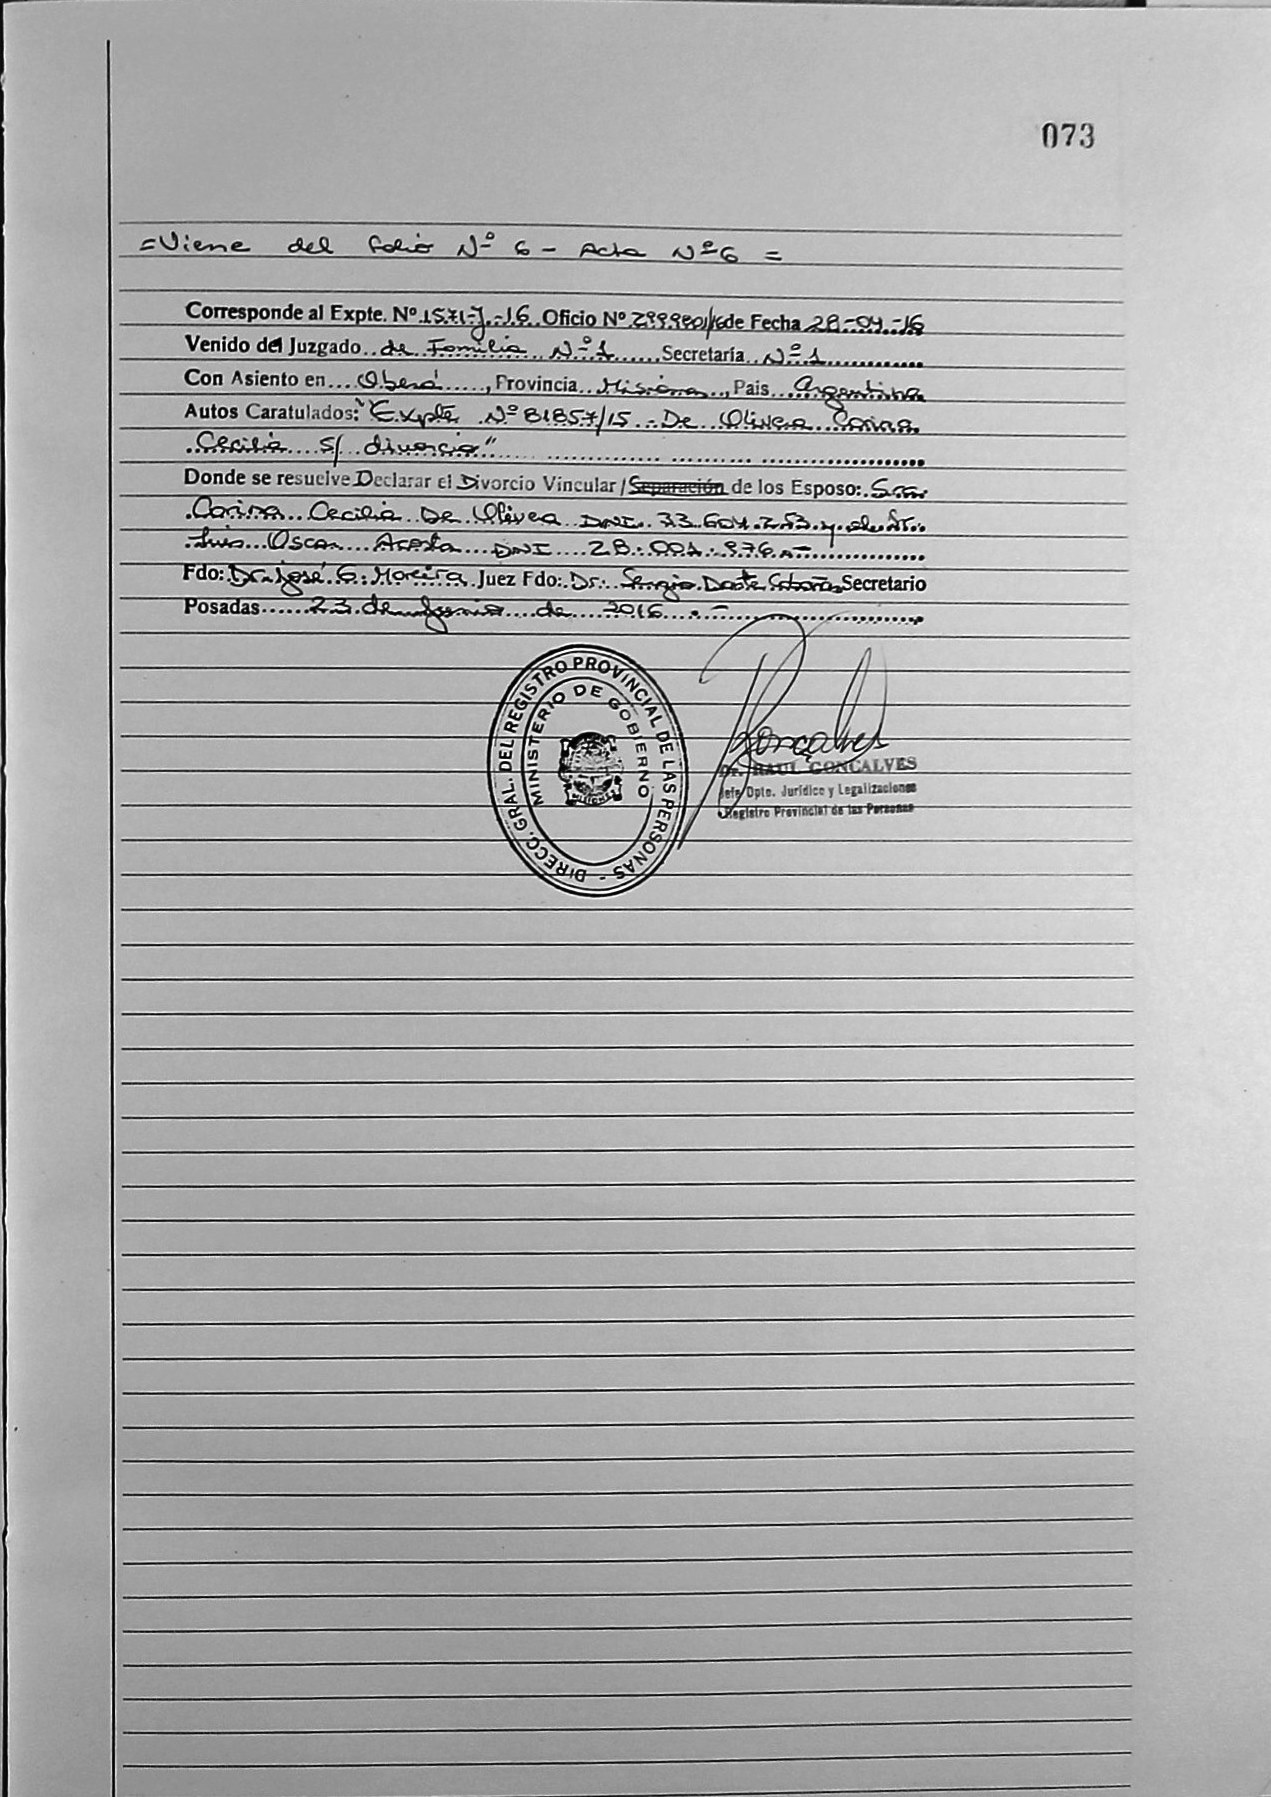 073
=Viene del folio Nº 6 - Acta Nº 6 =
Corresponde al Expte. Nº 1571-J-16 Oficio Nº 299980/16 de Fecha 28-04-16
Venido del Juzgado de Familia Nº 1 Secretaría Nº 1
Con Asiento en Oberá, Provincia Misiones, Pais Argentina
Autos Caratulados: "Expte Nº 81857/15 - De Olivera Carina
Cecilia s/ divorcio"
Donde se resuelve Declarar el Divorcio Vincular / Separación de los Esposo: Sra.
Carina Cecilia De Olivera DNI 33.604.253 y el Sr.
Luis Oscar Acosta DNI 28.001.976.-
Fdo: Dr. José G. Moreira Juez Fdo: Dr. Sergio Dante Secretario
Posadas 23 de Junio de 2016.-
DIRECC. GRAL. DEL REGISTRO PROVINCIAL DE LAS PERSONAS -
MINISTERIO DE GOBIERNO
MISIONES
Goncalves
Dr. RAUL GONCALVES
Jefe Dpto. Jurídico y Legalizaciones
Registro Provincial de las Personas